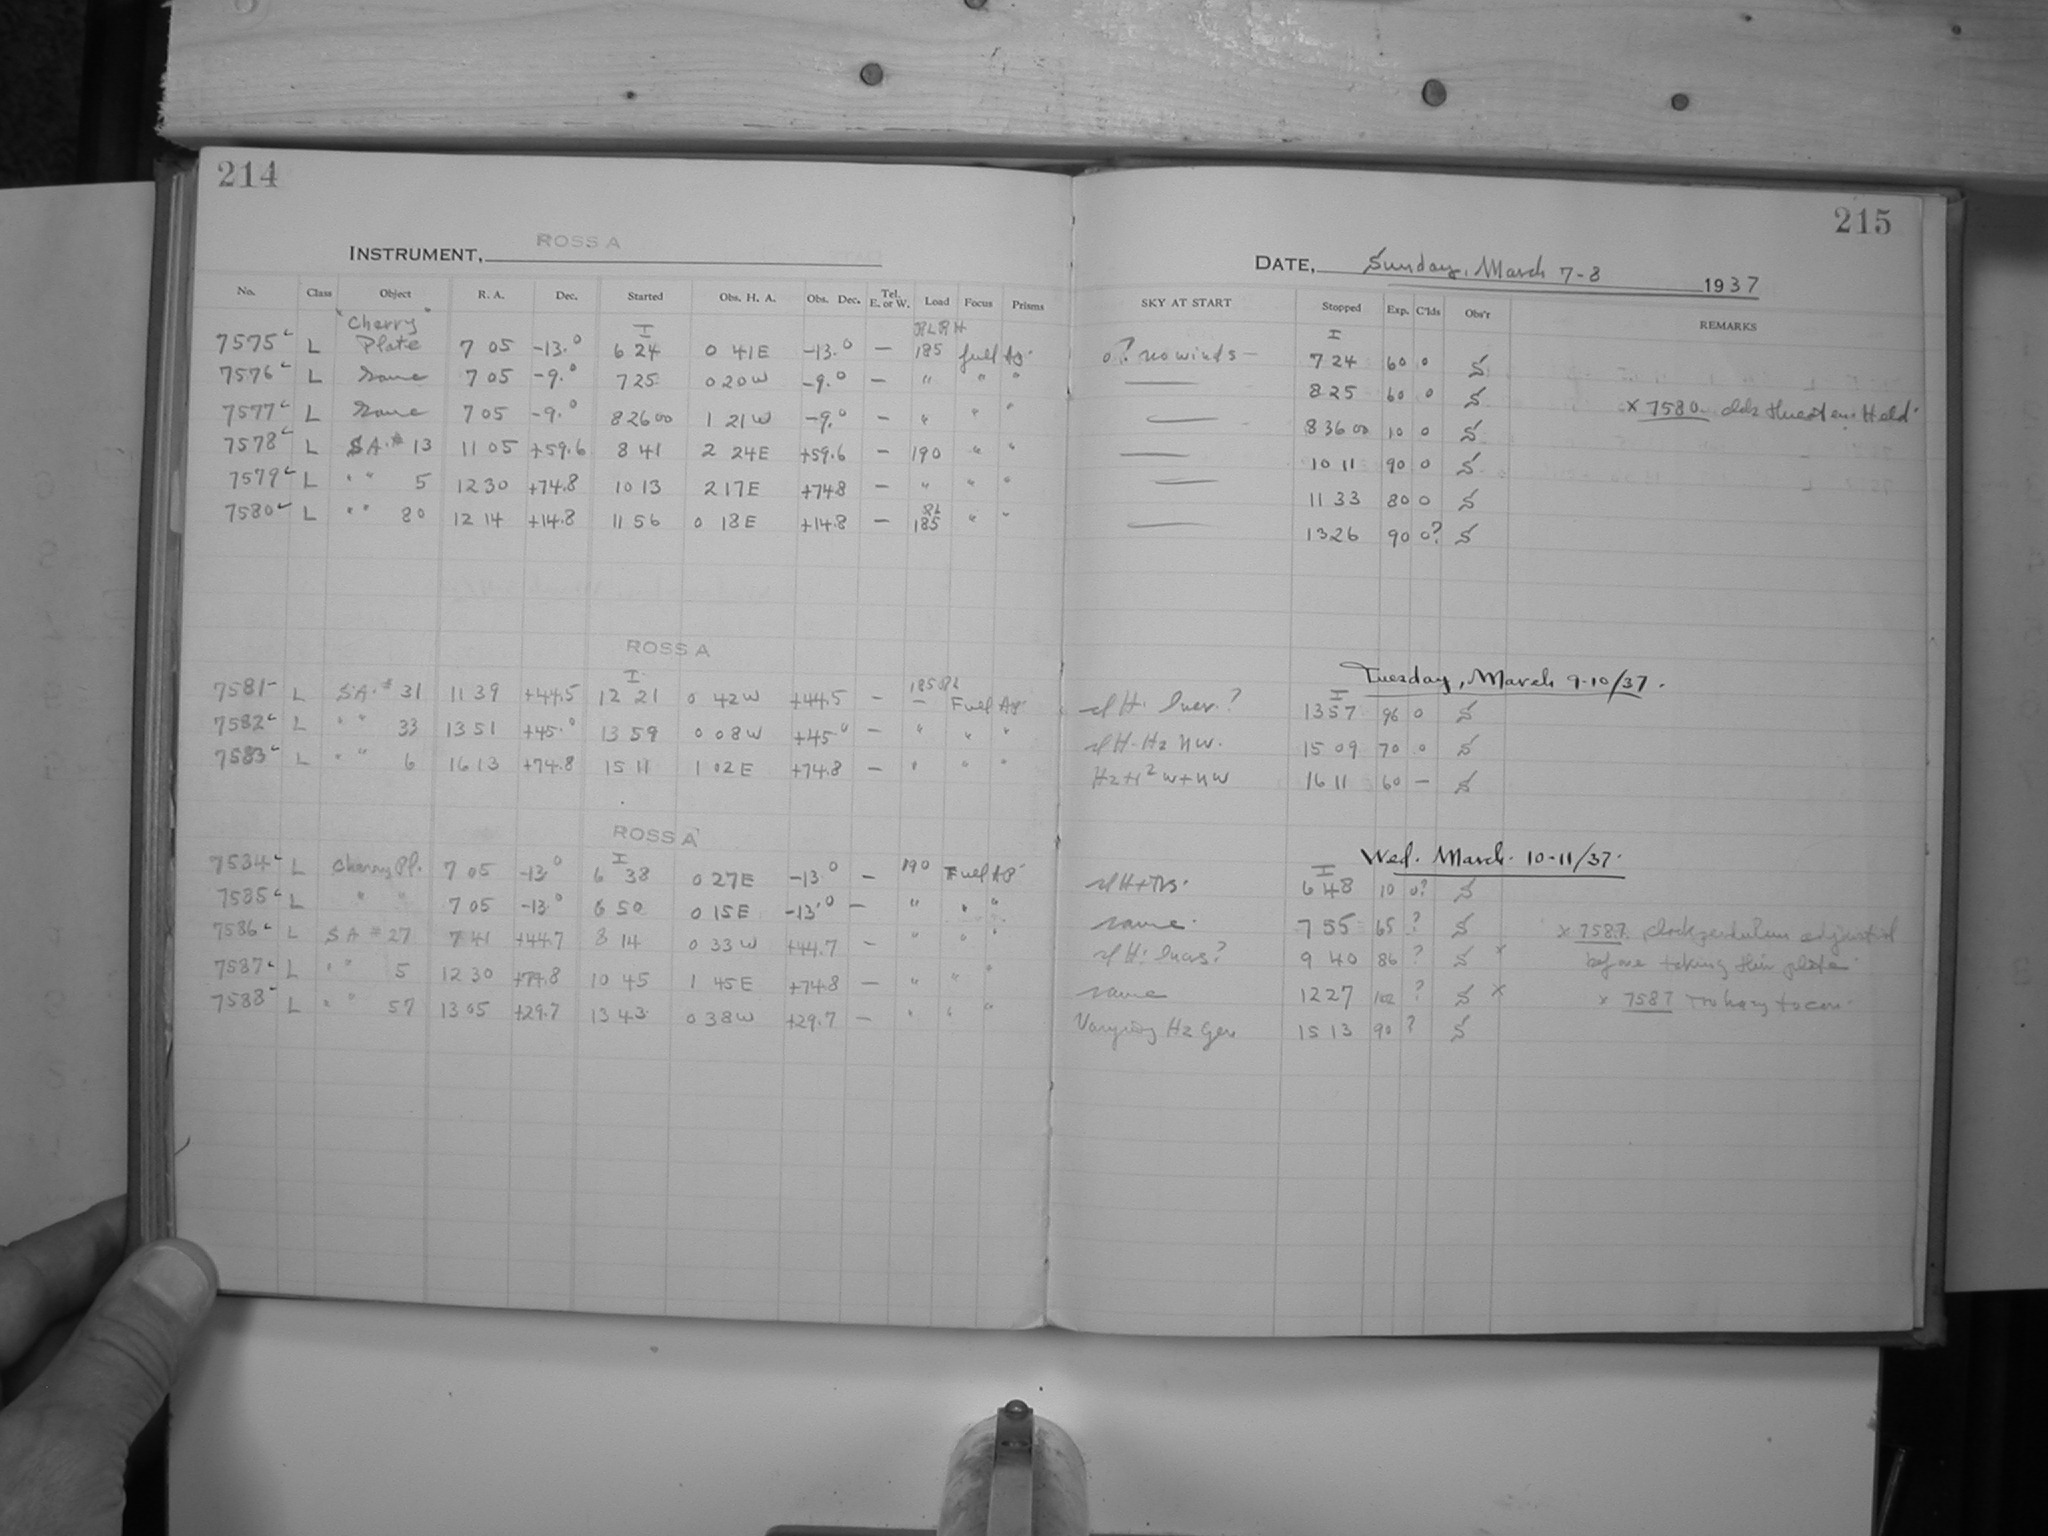 214
INSTRUMENT, ROSS A
No. Class Object R. A. Dec. Started Obs. H. A. Obs. Dec. Tel. E. or W. Load Focus Prisms
"Cherry" I
7575 L Plate 7 05 -13.0 6 24 0 41E -13.0 — 185 full Ap.
7576 L Same 7 05 -9.0 7 25 0 20W -9.0 — " " "
7577 L Same 7 05 -9.0 8 26 00 1 21W -9.0 — " " "
7578 L SA. # 13 11 05 +59.6 8 41 2 24E +59.6 — 190 " "
7579 L " " 5 12 30 +74.8 10 13 2 17E +74.8 — " " "
7580 L " " 80 12 14 +14.8 11 56 0 18E +14.8 — 185 " "
ROSS A
I
7581 L SA. # 31 11 39 +44.5 12 21 0 42W +44.5 — 185 — Full Ap.
7582 L " " 33 13 51 +45.0 13 59 0 08W +45.0 — " " "
7583 L " " 6 16 13 +74.8 15 11 1 02E +74.8 — " " "
ROSS A
I
7584 L Cherry Pl. 7 05 -13.0 6 38 0 27E -13.0 — 190 Full Ap.
7585 L " " 7 05 -13.0 6 50 0 15E -13.0 — " " "
7586 L SA # 27 7 41 +44.7 8 14 0 33W +44.7 — " " "
7587 L " " 5 12 30 +74.8 10 45 1 45E +74.8 — " " "
7588 L " " 57 13 05 +29.7 13 43 0 38W +29.7 — " " "
215
DATE, Sunday, March 7-8 1937
SKY AT START Stopped Exp. C'lds Obs'r REMARKS
I
0? no winds — 7 24 60 0 S
— 8 25 60 0 S
x 7580 Held
— 8 36 00 10 0 S
— 10 11 90 0 S
— 11 33 80 0 S
— 13 26 90 0? S
Tuesday, March 9-10/37.
I
13 57 96 0 S
Hz NW. 15 09 70 0 S
W+NW 16 11 60 — S
Wed. March 10-11/37.
I
6 48 10 0? S
same. 7 55 65 ? S
x 7587 clock pendulum adjusted
9 40 86 ? S x
before taking this plate
same 12 27 102 ? S x
x 7587 Too hazy to see
Varying Hz Gen 15 13 90 ? S